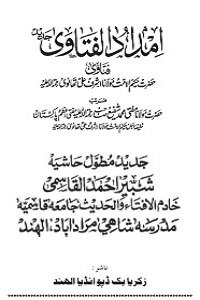 امداد الفتاوی جدید
فتاوی
حضرت حکیم الامت مولانا اشرف علی تھانوی
حضرت مولانا مفتی محمد شفیع صاحب مفتی اعظم پاکستان
جدید مطول حاشیہ
شبیر احمد القاسمی
خادم الافتاء والحدیث جامعہ قاسمیہ
مدرسہ شاهی مرادآباد، الهند
ناشر:
زکریا بک ڈپو انڈیا الهند